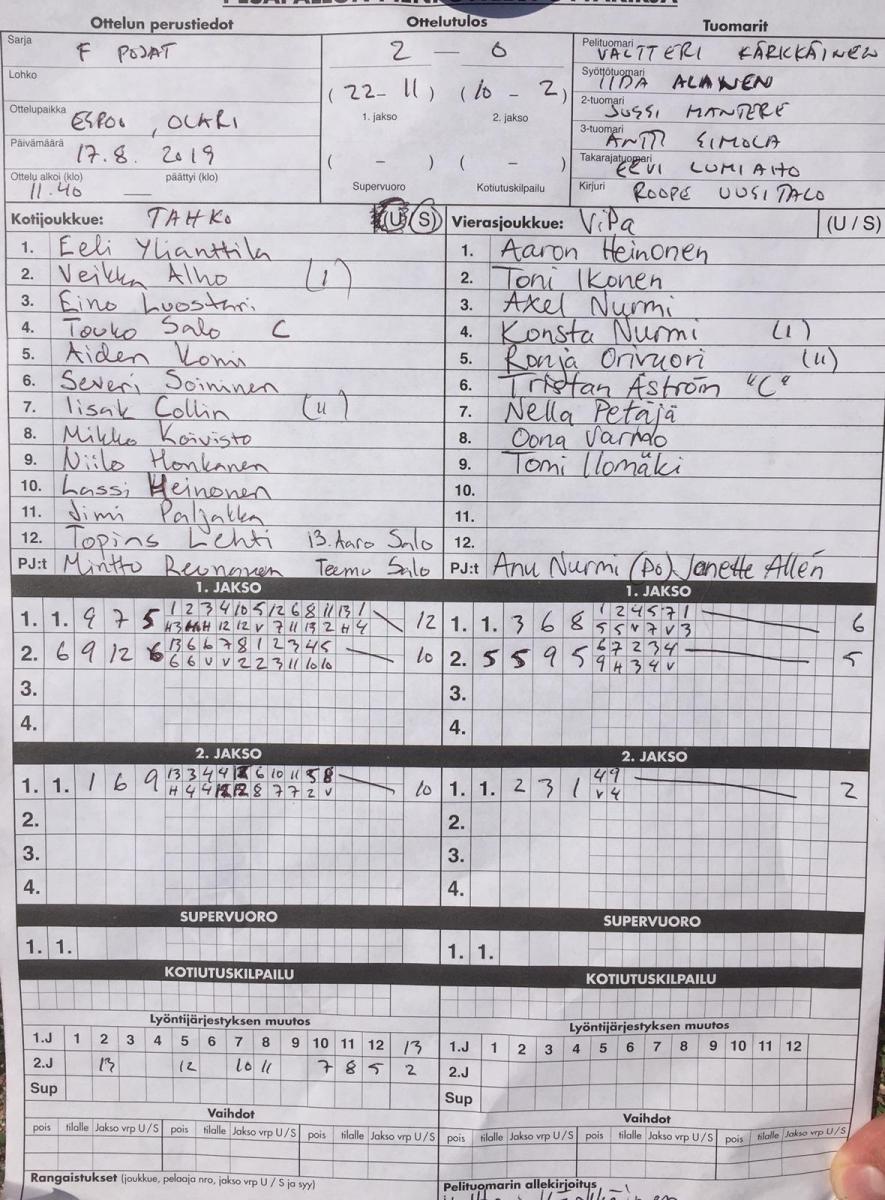 Ottelun perustiedot
Ottelutulos
Tuomarit
Sarja F POJAT
Lohko
Ottelupaikka ESPOO, OLARI
Päivämäärä 17.8. 2019
Ottelu alkoi (klo) päättyi (klo)
11.40 —
2 — 0
(22 - 11) (10 - 2)
1. jakso 2. jakso
( - ) ( - )
Supervuoro Kotiutuskilpailu
Pelituomari VALTTERI KÄRKKÄINEN
Syöttötuomari IIDA ALANEN
2-tuomari JUSSI MANTERE
3-tuomari ANTTI SIMOLA
Takarajatuomari EEVI LUMIAHO
Kirjuri ROOPE UUSITALO
Kotijoukkue: TAHKO (U/S)
1. Eeli Ylianttila
2. Veikka Alho (1)
3. Eino Luostari
4. Touko Salo C
5. Aiden Komi
6. Severi Soininen
7. Iisak Collin (u)
8. Mikko Koivisto
9. Niilo Honkanen
10. Lassi Heinonen
11. Jimi Paljakka
12. Topias Lehti 13. Aaro Salo
PJ:t Mintto Reunanen Teemu Salo
Vierasjoukkue: ViPa (U / S)
1. Aaron Heinonen
2. Toni Ikonen
3. Axel Nurmi
4. Konsta Nurmi (1)
5. Ronja Orivuori (u)
6. Tristan Åström "C"
7. Nella Petäjä
8. Oona Varho
9. Tomi Ilomäki
10.
11.
12.
PJ:t Anu Nurmi (Po) Janette Allén
1. JAKSO
1. 1. 9 7 5 1 2 3 4 10 5 12 6 8 11 13 1 12
2. 6 9 12 6 13 6 6 7 8 1 2 3 4 5 10
6 6 v v 2 2 3 11 10 10
3.
4.
1. JAKSO
1. 1. 3 6 8 1 2 4 5 7 1 6
5 5 v 7 v 3
2. 5 5 9 5 6 7 2 3 4 5
9 H 3 4 v
3.
4.
2. JAKSO
1. 1. 1 6 9 13 3 4 4 12 6 10 11 5 8 10
H 4 4 12 12 8 7 7 2 v
2.
3.
4.
2. JAKSO
1. 1. 2 3 1 4 9 2
v 4
2.
3.
4.
SUPERVUORO
1. 1.
SUPERVUORO
1. 1.
KOTIUTUSKILPAILU
KOTIUTUSKILPAILU
Lyöntijärjestyksen muutos
1.J 1 2 3 4 5 6 7 8 9 10 11 12 13
2.J 13 12 10 11 7 8 5 2
Sup
Lyöntijärjestyksen muutos
1.J 1 2 3 4 5 6 7 8 9 10 11 12
2.J
Sup
Vaihdot
pois tilalle Jakso vrp U / S pois tilalle Jakso vrp U / S pois tilalle Jakso vrp U / S
Vaihdot
pois tilalle Jakso vrp U / S pois tilalle Jakso vrp U / S pois tilalle Jakso vrp U / S
Rangaistukset (joukkue, pelaaja nro, jakso vrp U / S ja syy)
Pelituomarin allekirjoitus